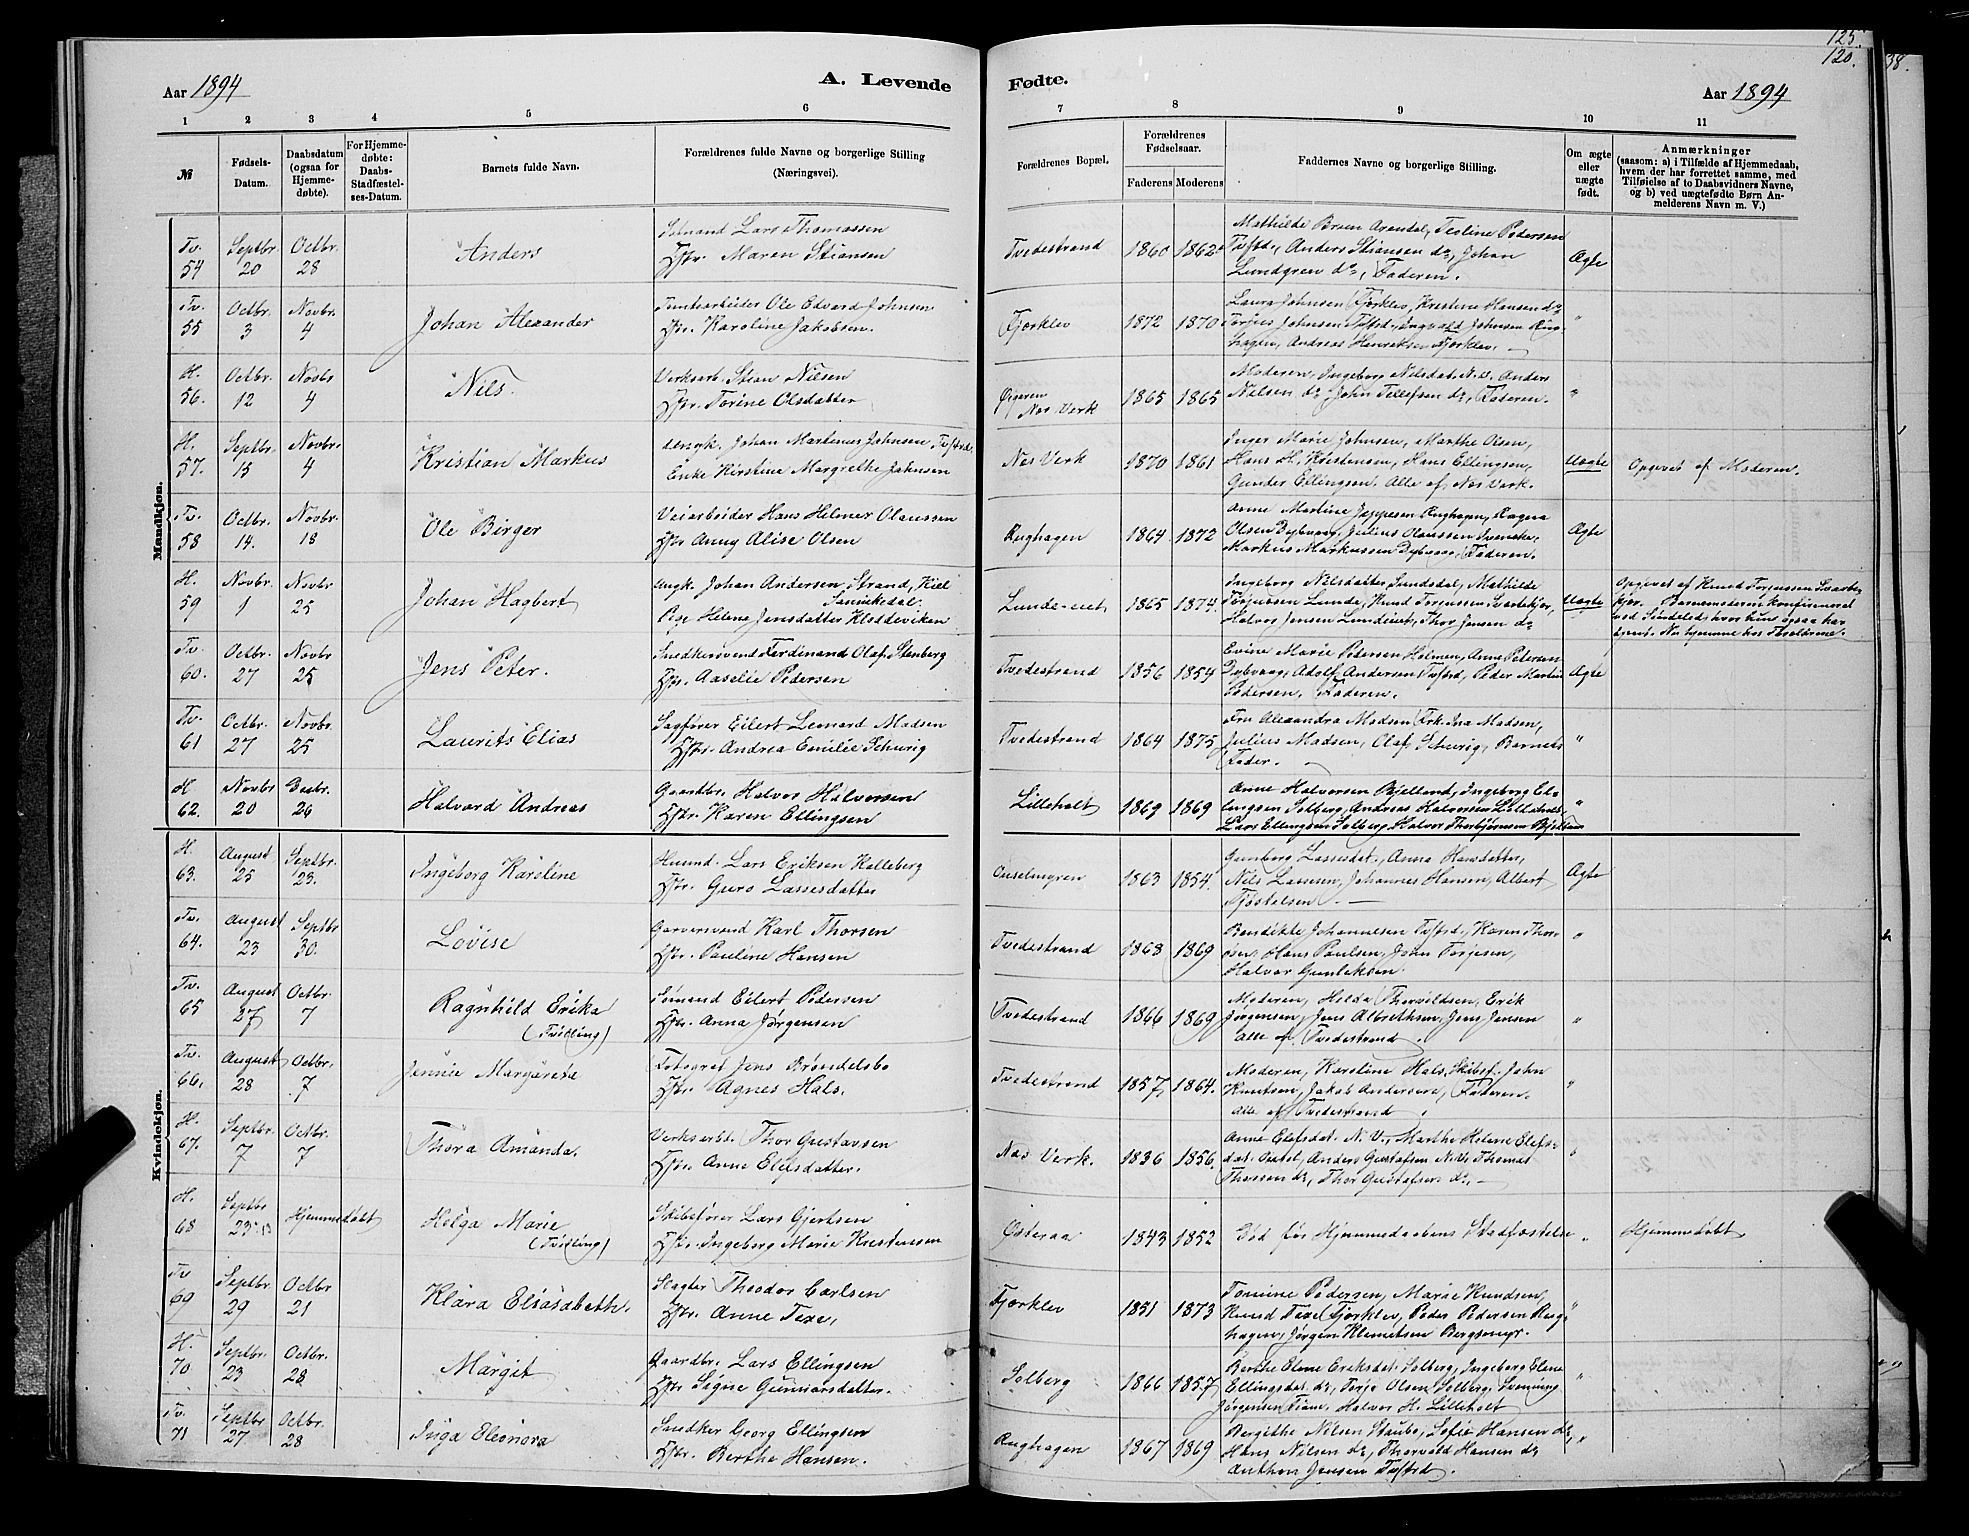 125.
120.
38.
Aar 1894
A. Levende
Fødte.
Aar 1894
1 2 3 4 5 6 7 8 9 10 11
№
Fødsels-
Datum.
Daabsdatum
(ogsaa for
Hjemme-
døbte).
For Hjemme-
døbte:
Daabs-
Stadfæstel-
ses-Datum.
Barnets fulde Navn.
Forældrenes fulde Navne og borgerlige Stilling
(Næringsvei).
Forældrenes Bopæl.
Forældrenes
Fødselsaar.
Faderens Moderens
Faddernes Navne og borgerlige Stilling.
Om ægte
eller
uægte
født.
Anmærkninger
(saasom: a) i Tilfælde af Hjemmedaab,
hvem der har forrettet samme, med
Tilføielse af to Daabsvidners Navne,
og b) ved uægtefødte Børn An-
melderens Navn m. V.)
Mandkjøn.
Tv. 54
Septbr. 20
Octbr. 28
Anders
Lars Thomassen
Hstr. Maren Stiansen
Tvedestrand
1860 1862
Mathilde Bruun Arendal, Teoline Pedersen
Tvstrd, Anders Stiansen do, Johan
Lundgren do, Faderen.
Ægte
Tv. 55
Octbr. 3
Novbr. 4
Johan Alexander
Tomtearbeider Ole Edvard Johnsen
Hstr. Karoline Jakobsen.
Fjærklev
1872 1870
Laura Johnsen Fjærklev, Kristine Hansen do
Torjus Johnsen Tvstrd, Ingvald Johnsen Rug-
hagen, Andreas Henriksen Fjærklev.
"
H. 56.
Octbr. 12
Novbr 4
Nils.
Verksarb. Stian Nilsen
Hstr. Torine Olsdatter
Nes Verk
1865 1865
Moderen, Ingeborg Nilsdat. N.V. Anders
Nielsen do, John Tellefsen do, Faderen.
"
H. 57.
Septbr. 15
Novbr. 4
Kristian Markus
Ungk. Johan Martinus Johnsen Tvstrd.
Enke Kirstine Margrethe Johnsen
Nes Verk
1870 1861
Inger Marie Johnsen, Marthe Olsen,
Hans H. Kristensen, Hans Ellingsen,
Gunder Ellingsen. Alle af Nes Verk.
Uægte
Opgivet af Moderen.
Tv. 58
Octbr. 14.
Novbr. 18
Ole Birger
Veiarbeider Hans Helmer Olaussen
Hstr Anny Alise Olsen
Rughagen
1864 1872
Anne Martine Jeppesen Rughagen, Ragna
Olsen Dybvaag, Julius Olaussen
Markus Markussen Dybvaag, Faderen.
Ægte
H. 59
Novbr. 1
Novbr 25
Johan Hagbert
Ungk. Johan Andersen Strand, Kiel
Sannikedal.
Pige Helene Jensdatter Klodeviken
Lunde-eiet
1865 1874.
Ingeborg Nilsdatter Sundsdal, Mathilde
Torjussen Lunde, Knud Torjussen Svartekjær,
Halvor Jensen Lundeeiet, Thor Jensen do
Uægte
Opgivet af Knud Torjussen Svarte-
kjær. Barnemoderen konfirmeret
ved Søndeled, hvor hun ogsaa har
tjent. Nu hjemme hos Forældrene.
Tv. 60.
Octbr. 27
Novbr 25
Jens Peter.
Snedkersvend Ferdinand Olaf Stenberg
Hstr. Aaselie Pedersen
Tvedestrand
1856 1854
Evine Marie Petersen Holmen, Anne Petersen
Dybvaag, Adolf Andersen Tvstrd, Peder Martin
Pedersen, Faderen.
Ægte
Tv. 61
Octbr. 27
Novbr. 25
Laurits Elias
Sagfører Eilert Leonard Madsen
Hstr. Andrea Emilie Schurig
Tvedestrand
1864 1875
Fru Alexandra Madsen, Frk. Ina Madsen,
Julius Madsen, Olaf Schurig, Barnets
Fader.
"
H 62.
Novbr 20
Decbr. 26
Halvard Andreas
Gaardbr. Halvor Halvorsen
Hstr. Karen Ellingsen
Lilleholt
1869 1869
Anne Halvorsen Bjelland, Ingeborg El-
lingsen Solberg, Andreas Halvorsen Lilleholt
Lars Ellingsen Solberg, Halvor Thorbjørnsen Bjelland
"
Kvindekjøn.
H. 63.
August 25
Septbr. 23.
Ingeborg Karoline
Husmd. Lars Eriksen Kalleberg
Hstr. Guro Lassesdatter
1863 1854.
Gunborg Lassesdat., Anna Hansdatter,
Nils Lassesen, Johannes Hansen, Albert
Tjøstelsen.
Ægte
Tv. 64.
August 23
Septbr 30.
Lovise
Garversvend Karl Thorsen
Hstr. Pauline Hansen
Tvedestrand
1868 1869
Bendikte Johannesen Tvstrd, Karen Thor-
sen, Hans Paulsen, John Torjesen,
Halvor Gunleksen.
"
Tv. 65
August 27
Octbr. 7
Ragnhild Erika
(Tvilling)
Sømand Eilert Pedersen
Hstr. Anna Jørgensen
Tvedestrand
1866 1869
Moderen, Hilda Thorvildsen, Erik
Jørgensen, Jens Albrethsen, Jens Jensen
Alle af Tvedestrand.
"
Tv. 66.
August 28
Octbr. 7
Jennie Margareta
Fotograf Jens Brøndelsbo
Hstr. Agnes Hals.
Tvedestrand
1857 1864.
Moderen, Karoline Hals, Skibsf. John
Knutsen, Jakob Andersen, Faderen.
Alle af Tvedestrand.
"
H. 67.
Septbr. 7
Octbr. 7
Thora Amanda.
Verksarb. Thor Gustavsen
Hstr. Anne Elefsdatter.
Nes Verk.
1836 1856.
Anne Elefsdat. N. V., Marthe Helene Elefs-
dat. Anders Gustafsen N.V. Thomas
Thorsen do, Thor Gustafsen do.
"
H. 68
Septbr 23
Hjemmedøbt
Helga Marie
(Tvilling)
Skibsfører Lars Gjertsen
Hstr. Ingeborg Marie Kristensen
Østeraa
1843 1852
Død før Hjemmedaabens Stadfæstelse
"
Hjemmedøbt
Tv 69
Septbr 29
Octbr 21
Klara Elisabeth.
Slagter Theodor Carlsen
Hstr. Anne Texe,
Fjærklev
1851 1873
Tomine Pedersen, Marie Knudsen,
Knud Texe Fjærklev, Peder Pedersen Rug-
hagen, Jørgen Klemetsen Bergsmyr.
"
H. 70
Septbr. 23
Octbr. 28
Margit
Gaardbr. Lars Ellingsen
Hstr Signe Gunnarsdatter.
Solberg
1866 1857
Berthe Elene Eriksdat. Solberg, Ingeborg Elene
Ellingsdat. do, Terje Olsen Solberg, Svenning
Jørgensen Fiane, Halvor H. Lilleholt
"
Tv. 71
Septbr 27
Octbr. 28
Inga Eleonora
Snedker Georg Ellingsen
Hstr. Berthe Hansen.
Rughagen
1867 1869
Bergithe Nilsen Staubo, Sofie Hansen do,
Hans Nilsen do, Thorvald Hansen do
Anthon Jensen Tvstrd.
"